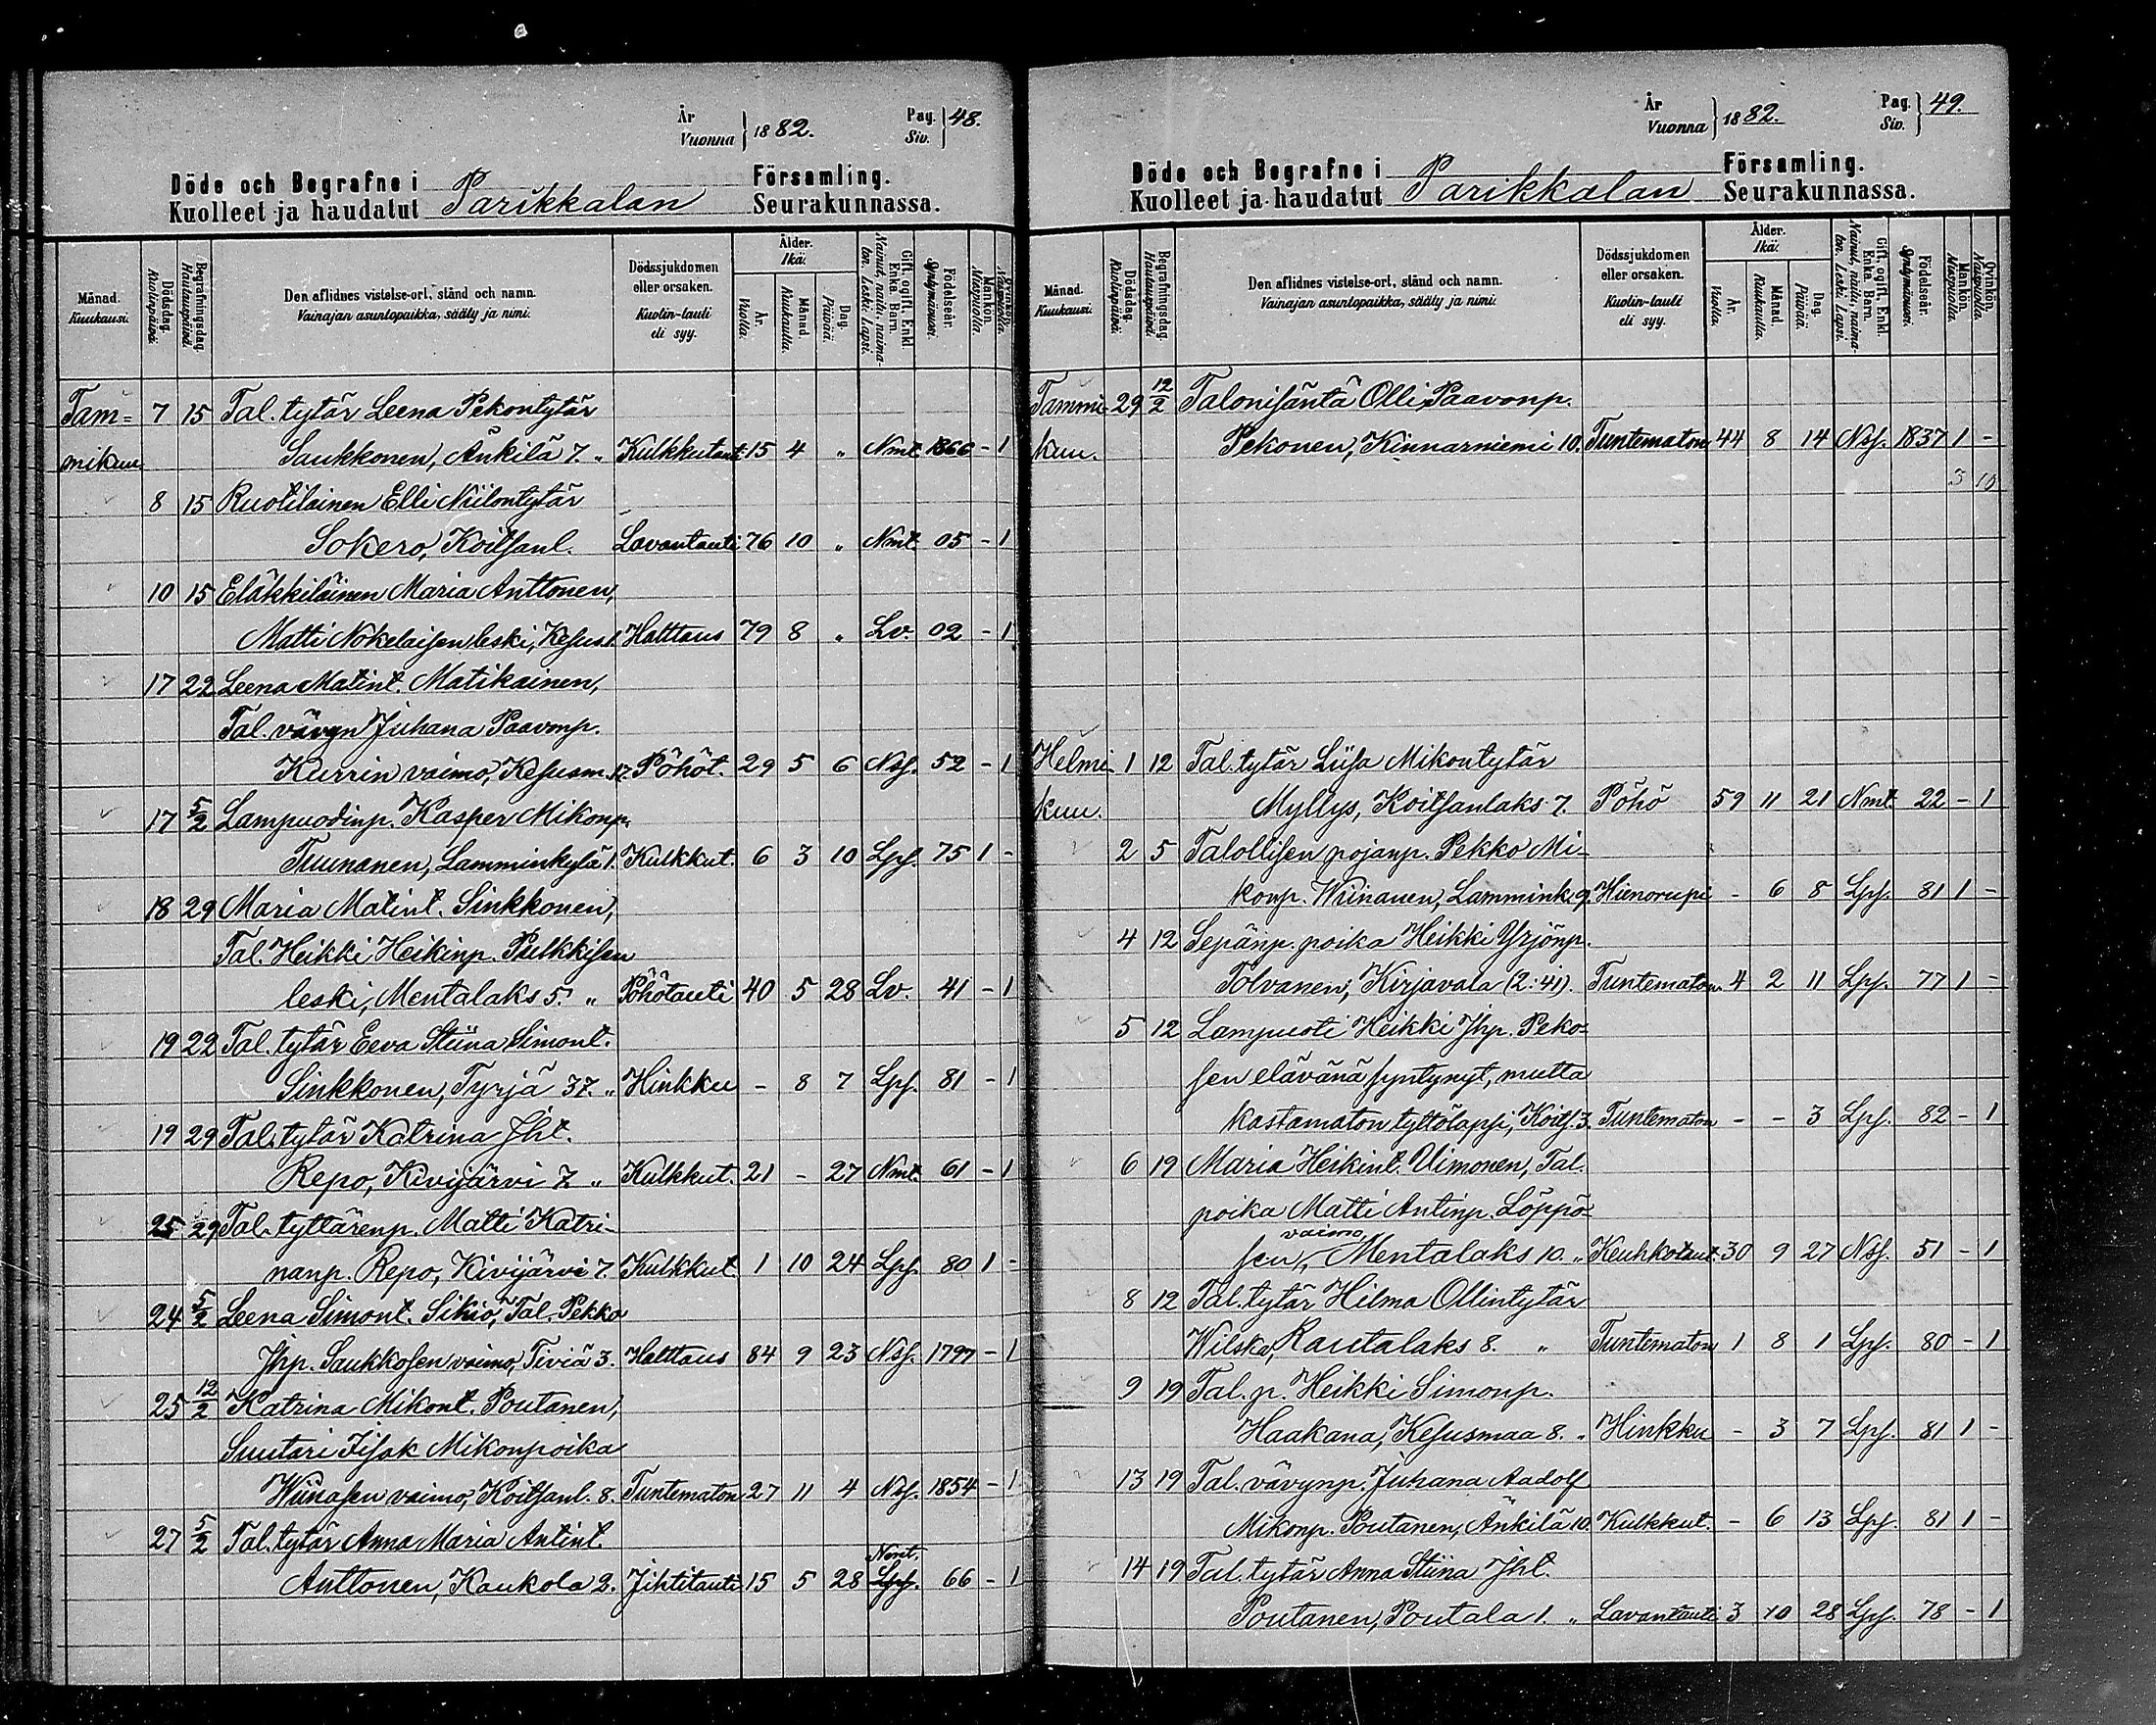 År
Vuonna } 1882. Pag. Siv. } 48.
Döde och Begrafne i Församling.
Kuolleet ja haudatut Parikkalan Seurakunnassa.
Månad. Kuukausi. Dödsdag. Kuolinpäivä. Begrafningsdag. Hautauspäivä. Den aflidnes vistelse-ort, stånd och namn. Vainajan asuntopaikka, sääty ja nimi. Dödssjukdomen eller orsaken. Kuolin-tauti eli syy. Ålder. Ikä. År. Vuotta. Månad. Kuukautta. Dag. Päivää. Gift, ogift, Enkl. Enka. Barn. Nainut, naitu, naimaton. Leski. Lapsi. Födelseår. Syntymävuosi. Mankön. Miespuolia. Qvinkön. Naispuolia.
Tam= 7 15 Tal. tytär Leena Pekontytär
mikuu Saukkonen, Änkilä 7. „ Kulkkutaut. 15 4 „ Nmt. 1866 - 1
8 15 Ruotilainen Elli Niilontytär
Sokero, Koitsanl. Lavantauti 76 10 „ Nmt. 05 - 1
10 15 Eläkkiläinen Maria Anttonen,
Matti Nokelaisen leski, Kesus. 1. Halttaus 79 8 „ Lv. 02 - 1
17 22 Leena Matint. Matikainen,
Tal. vävyn Juhana Paavonp.
Kurrin vaimo, Kesusm. 17. Pöhöt. 29 5 6 Nsf. 52 - 1
17 5/2 Lampuodinp. Kasper Mikonp.
Tuunanen, Lamminkylä 1. Kulkkut. 6 3 10 Lps. 75 1 -
18 29 Maria Matint. Sinkkonen,
Tal. Heikki Heikinp. Pulkkisen
leski, Mentalaks 5. „ Pöhötauti 40 5 28 Lv. 41 - 1
19 22 Tal. tytär Eeva Stiina Simont.
Sinkkonen, Tyrjä 37. „ Hinkku - 8 7 Lps. 81 - 1
19 29 Tal. tytär Katrina Jht.
Repo, Kivijärvi 7 „ Kulkkut. 21 - 27 Nmt. 61 - 1
25 29 Tal. tyttärenp. Matti Katri-
nanp. Repo, Kivijärvi 7. Kulkkut. 1 10 24 Lps. 80 1 -
24 5/2 Leena Simont. Sikiö, Tal. Pekko
Jhp. Saukkosen vaimo, Tiviä 3. Halttaus 84 9 23 Nsf. 1797 - 1
25 12/2 Katrina Mikont. Poutanen,
Suutari Iisak Mikonpoika
Wiinasen vaimo, Koitsanl. 8. Tuntematon 27 11 4 Nsf. 1854 - 1
27 5/2 Tal. tytär Anna Maria Antint.
Nmt.
Anttonen, Kaukola 2. Jihtitauti 15 5 28 Lps. 66 - 1
År
Vuonna } 1882. Pag. Siv. } 49.
Döde och Begrafne i Församling.
Kuolleet ja haudatut Parikkalan Seurakunnassa.
Månad. Kuukausi. Dödsdag. Kuolinpäivä. Begrafningsdag. Hautauspäivä. Den aflidnes vistelse-ort, stånd och namn. Vainajan asuntopaikka, sääty ja nimi. Dödssjukdomen eller orsaken. Kuolin-tauti eli syy. Ålder. Ikä. År. Vuotta. Månad. Kuukautta. Dag. Päivää. Gift, ogift, Enkl. Enka. Barn. Nainut, naitu, naimaton. Leski. Lapsi. Födelseår. Syntymävuosi. Mankön. Miespuolia. Qvinkön. Naispuolia.
Tammi- 29 12/2 Talonisäntä Olli Paavonp.
kuu. Pekonen, Kinnarniemi 10. Tuntematon 44 8 14 Nsf. 1837 1 -
3 10
Helmi- 1 12 Tal. tytär Liisa Mikontytär
kuu. Myllys, Koitsanlaks 7. Pöhö 59 11 21 Nmt 22 - 1
2 5 Talollisen pojanp. Pekko Mi-
konp. Wiinanen, Lammink. 9. Hienorupi - 6 8 Lps. 81 1 -
4 12 Sepänp. poika Heikki Yrjönp.
Tolvanen, Kirjavala (2:41). Tuntematon 4 2 11 Lps. 77 1 -
5 12 Lampuoti Heikki Jhp. Peko=
sen elävänä syntynyt, mutta
kastamaton tyttölapsi, Koits. 3. Tuntematon - - 3 Lps. 82 - 1
6 19 Maria Heikint. Uimonen, Tal.
poika Matti Antinp. Löppö=
vaimo,
sen, Mentalaks 10. „ Keuhkotaut. 30 9 27 Nsf. 51 - 1
8 12 Tal. tytär Hilma Ollintytär
Wilska, Rautalaks 8. „ Tuntematon 1 8 1 Lps. 80 - 1
9 19 Tal. p. Heikki Simonp.
Haakana, Kesusmaa 8. „ Hinkku - 3 7 Lps. 81 1 -
13 19 Tal. vävynp. Juhana Aadolf
Mikonp. Poutanen, Änkilä 10. Kulkkut. - 6 13 Lps. 81 1 -
14 19 Tal. tytär Anna Stiina Jht.
Poutanen, Poutala 1. „ Lavantauti 3 10 28 Lps. 78 - 1